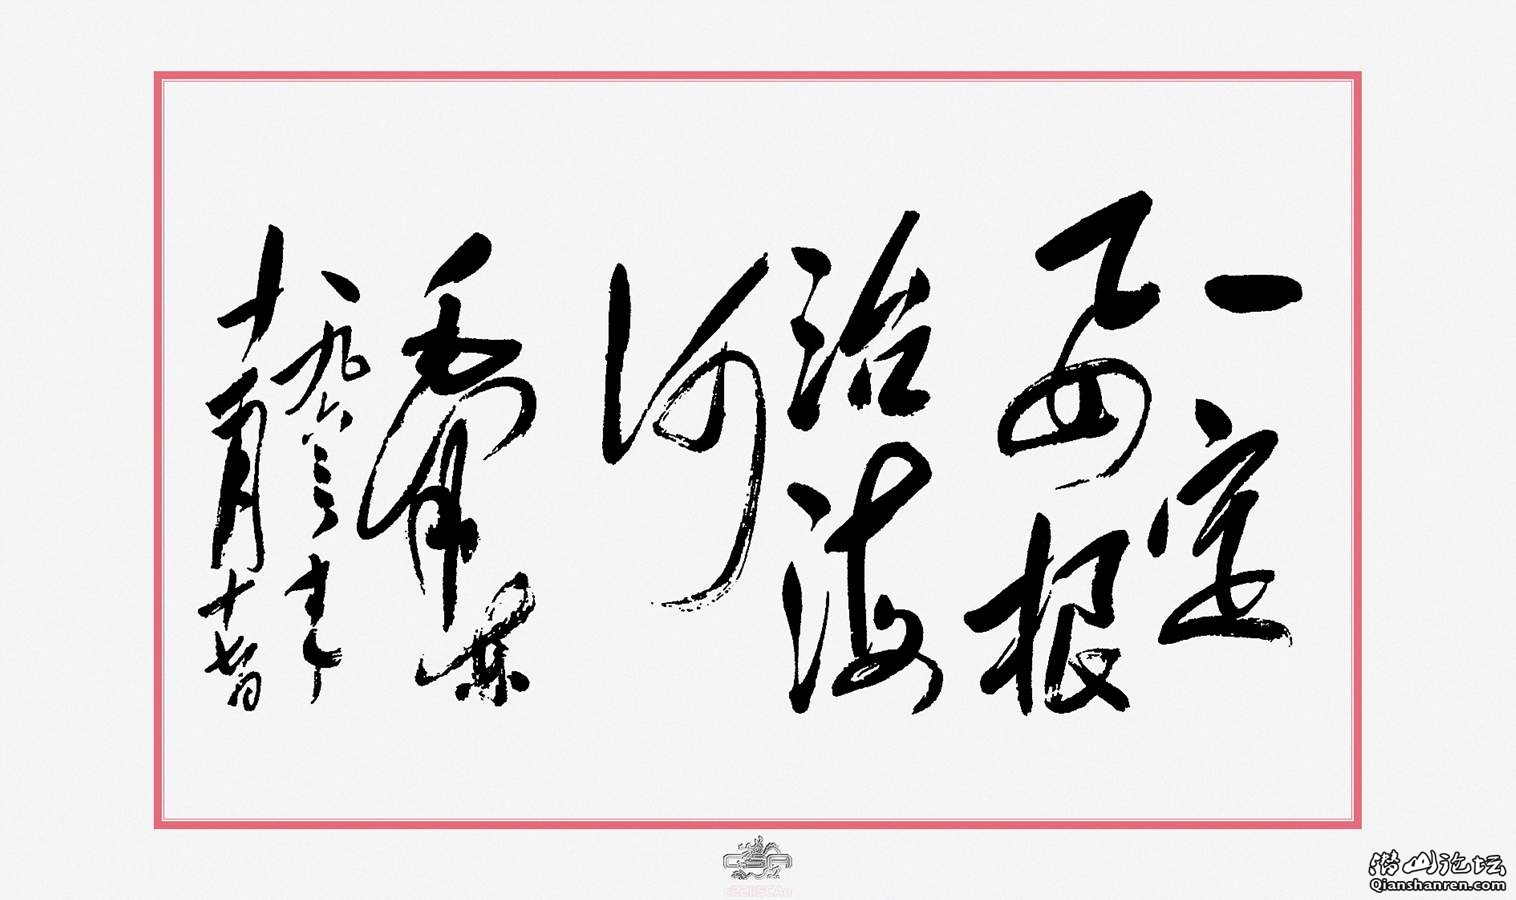 一定
要根
治海
河
毛泽东
一九六三年
十一月十七日
潜山论坛
Qianshanren.com